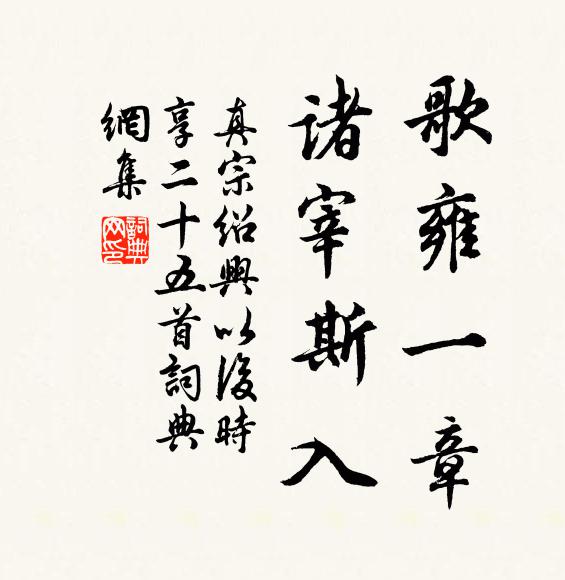 歌雍一章
诸宰斯入
真宗绍興以後時
享二十五首詞典
網集
詞典網印